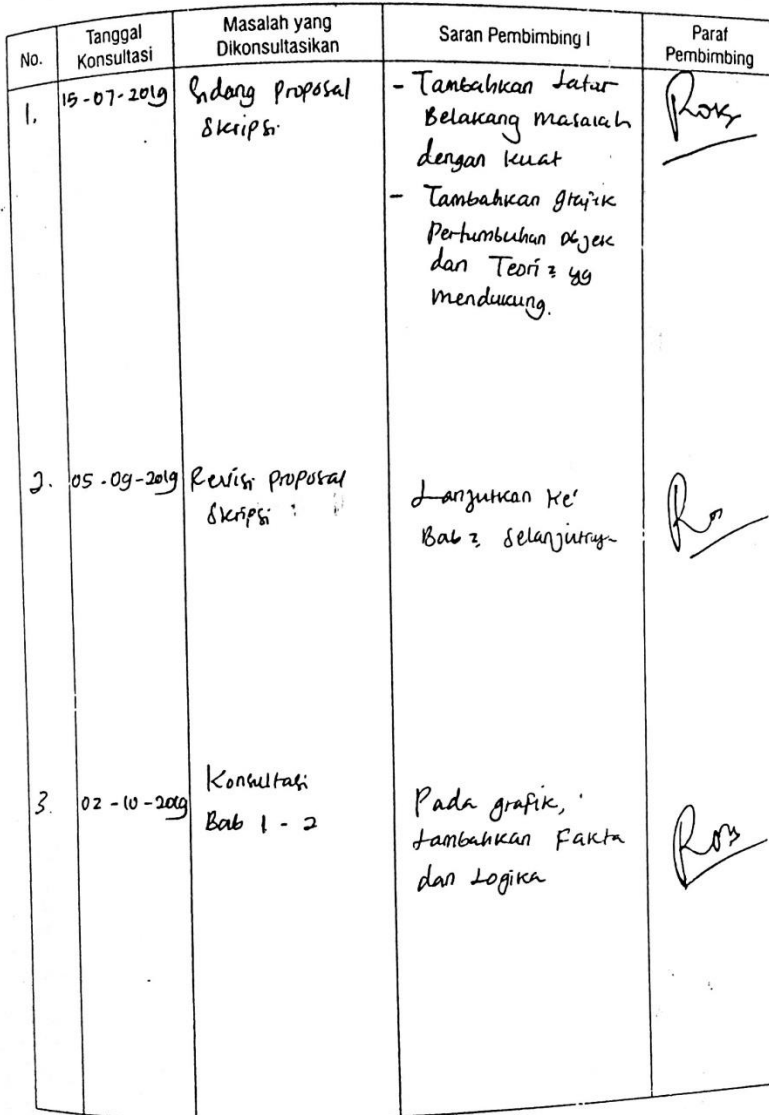 No.
Tanggal
Konsultasi
Masalah yang
Dikonsultasikan
Saran Pembimbing I
Paraf
Pembimbing
1.
15-07-2019
Sidang Proposal
Skripsi
- Tambahkan Latar
Belakang masalah
dengan kuat
- Tambahkan grafik
Pertumbuhan objek
dan Teori2 yg
mendukung.
2.
05-09-2019
Revisi Proposal
Skripsi
Lanjutkan Ke
Bab2 Selanjutnya
3.
02-10-2019
Konsultasi
Bab 1 - 2
Pada grafik,
tambahkan Fakta
dan Logika